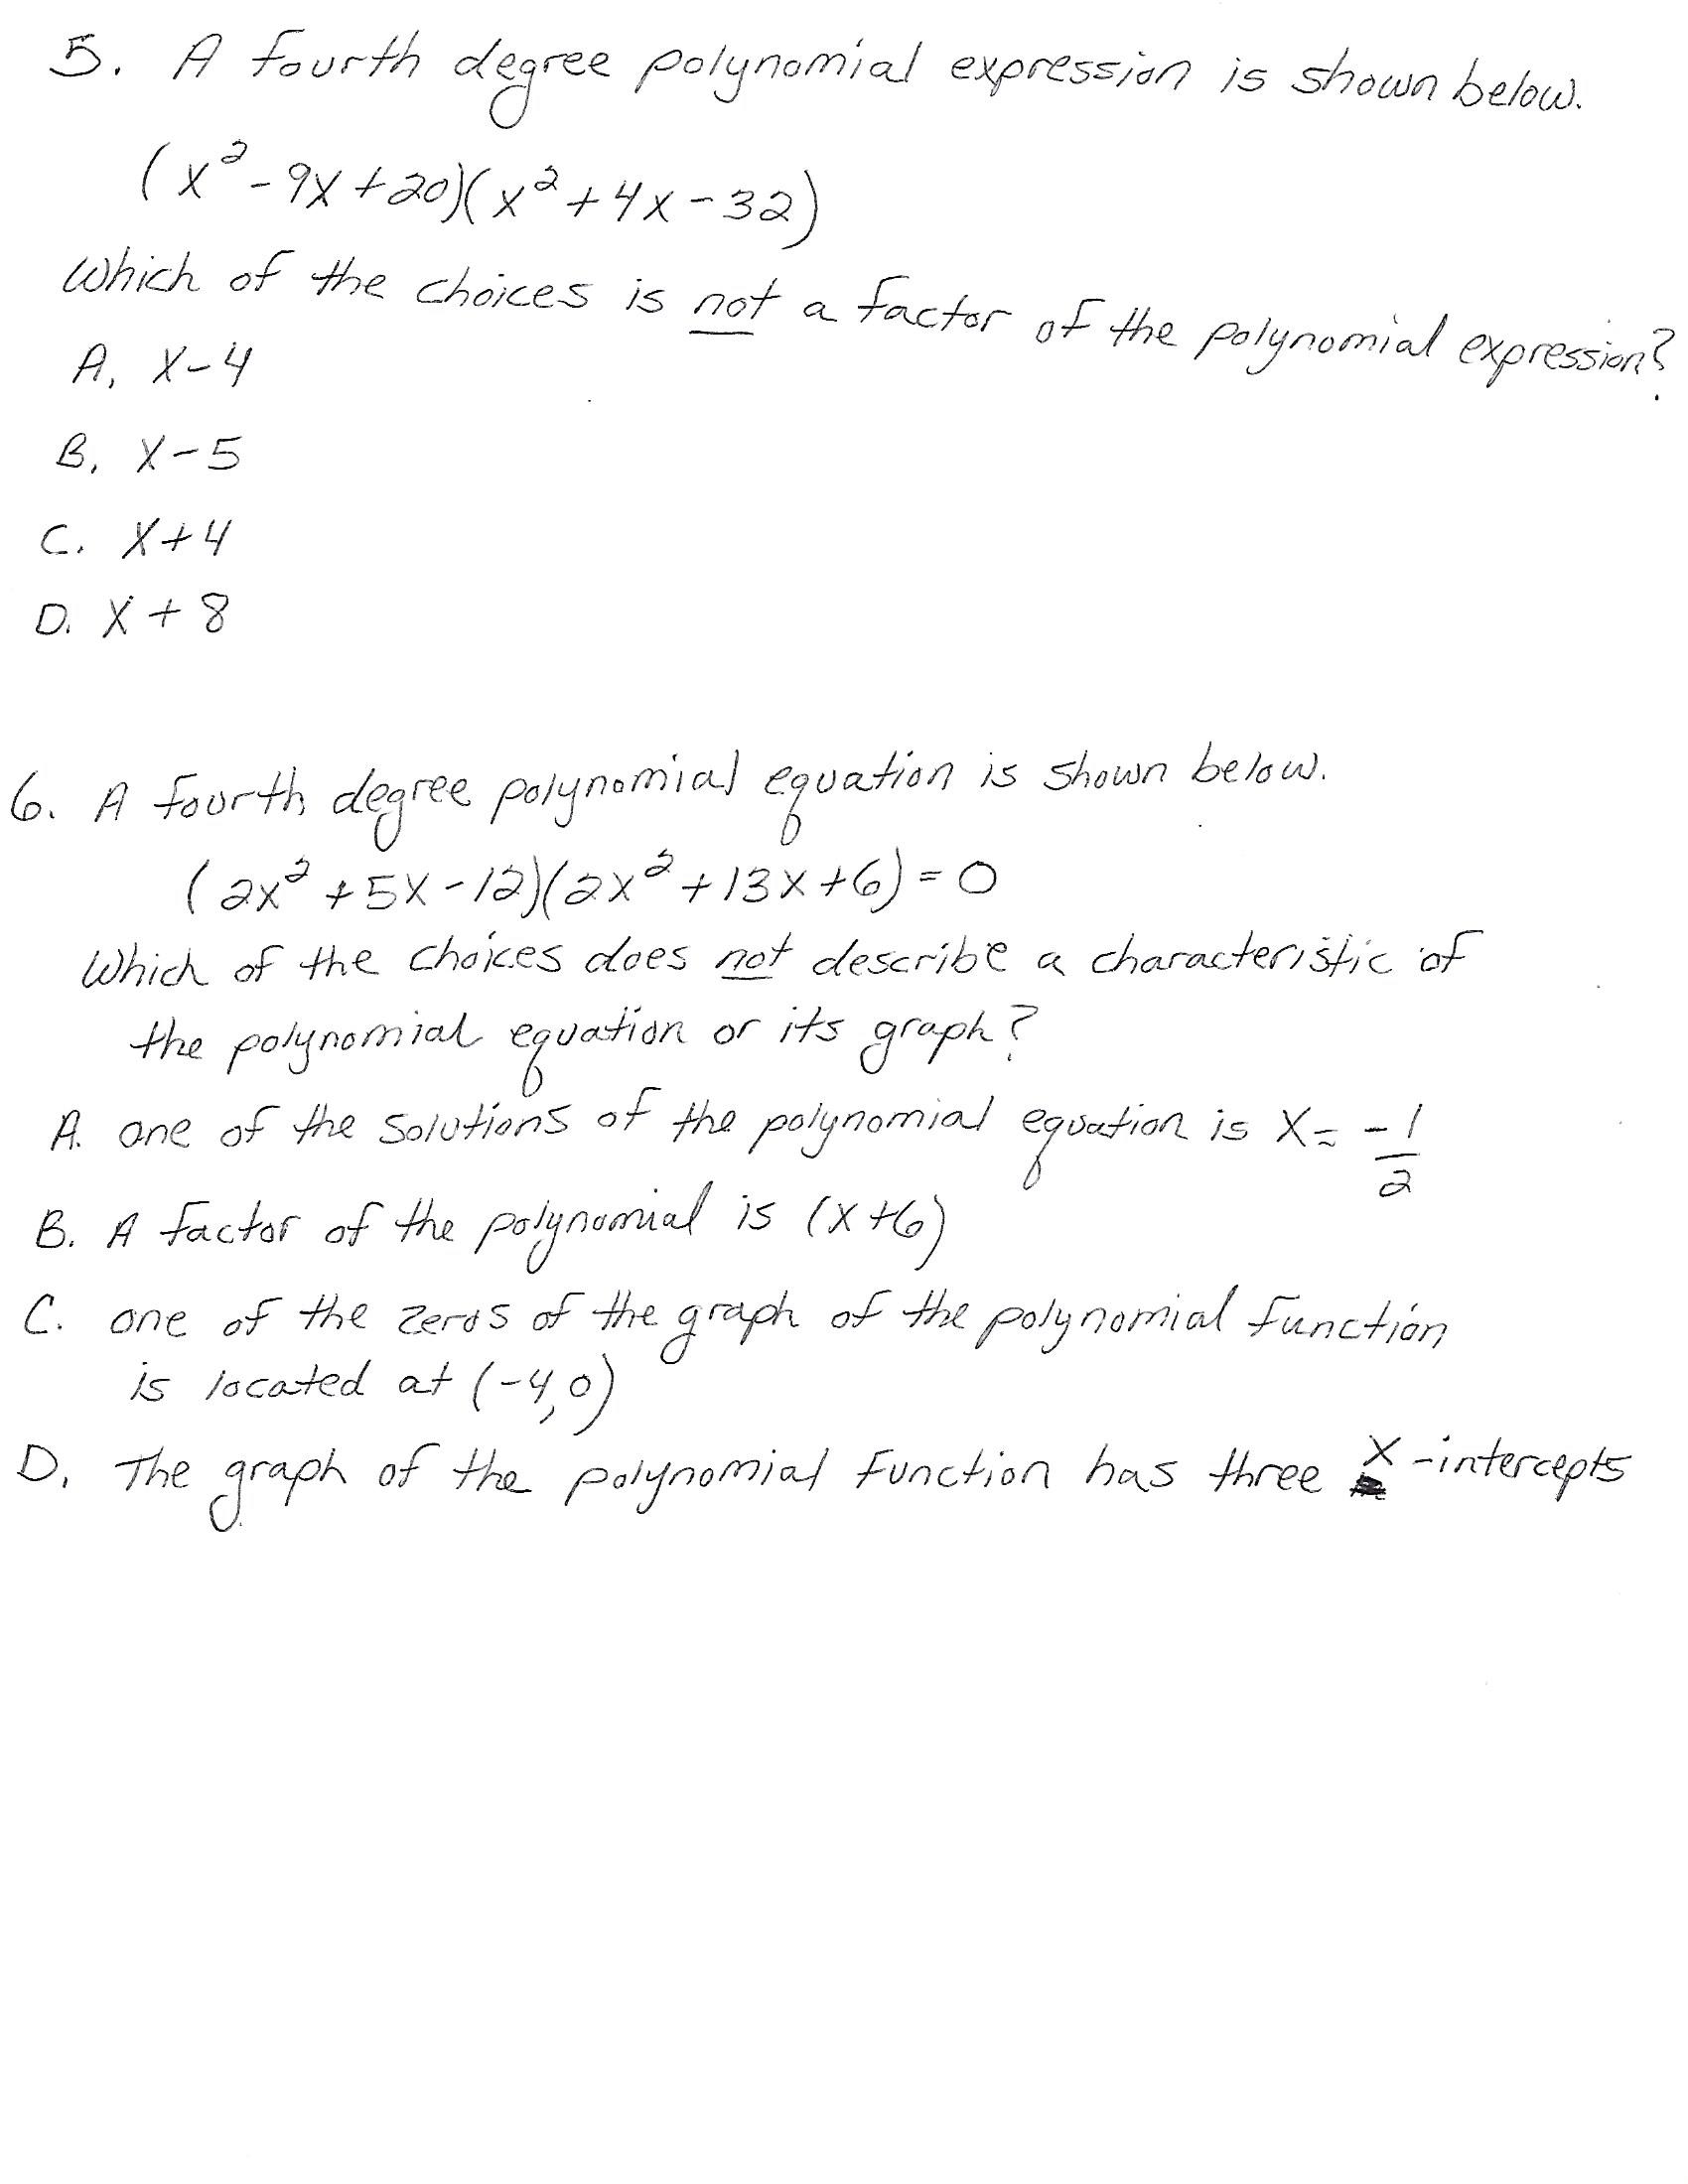 5. A fourth degree polynomial expression is shown below.
(x² - 9x + 20)(x² + 4x - 32)
Which of the choices is not a factor of the polynomial expression?
A. x-4
B. x-5
C. x+4
D. x+8
6. A fourth degree polynomial equation is shown below.
(2x² + 5x - 12)(2x² + 13x + 6) = 0
Which of the choices does not describe a characteristic of
the polynomial equation or its graph?
A. one of the solutions of the polynomial equation is x = -1/2
B. A factor of the polynomial is (x+6)
C. one of the zeros of the graph of the polynomial function
is located at (-4,0)
D. The graph of the polynomial function has three x-intercepts